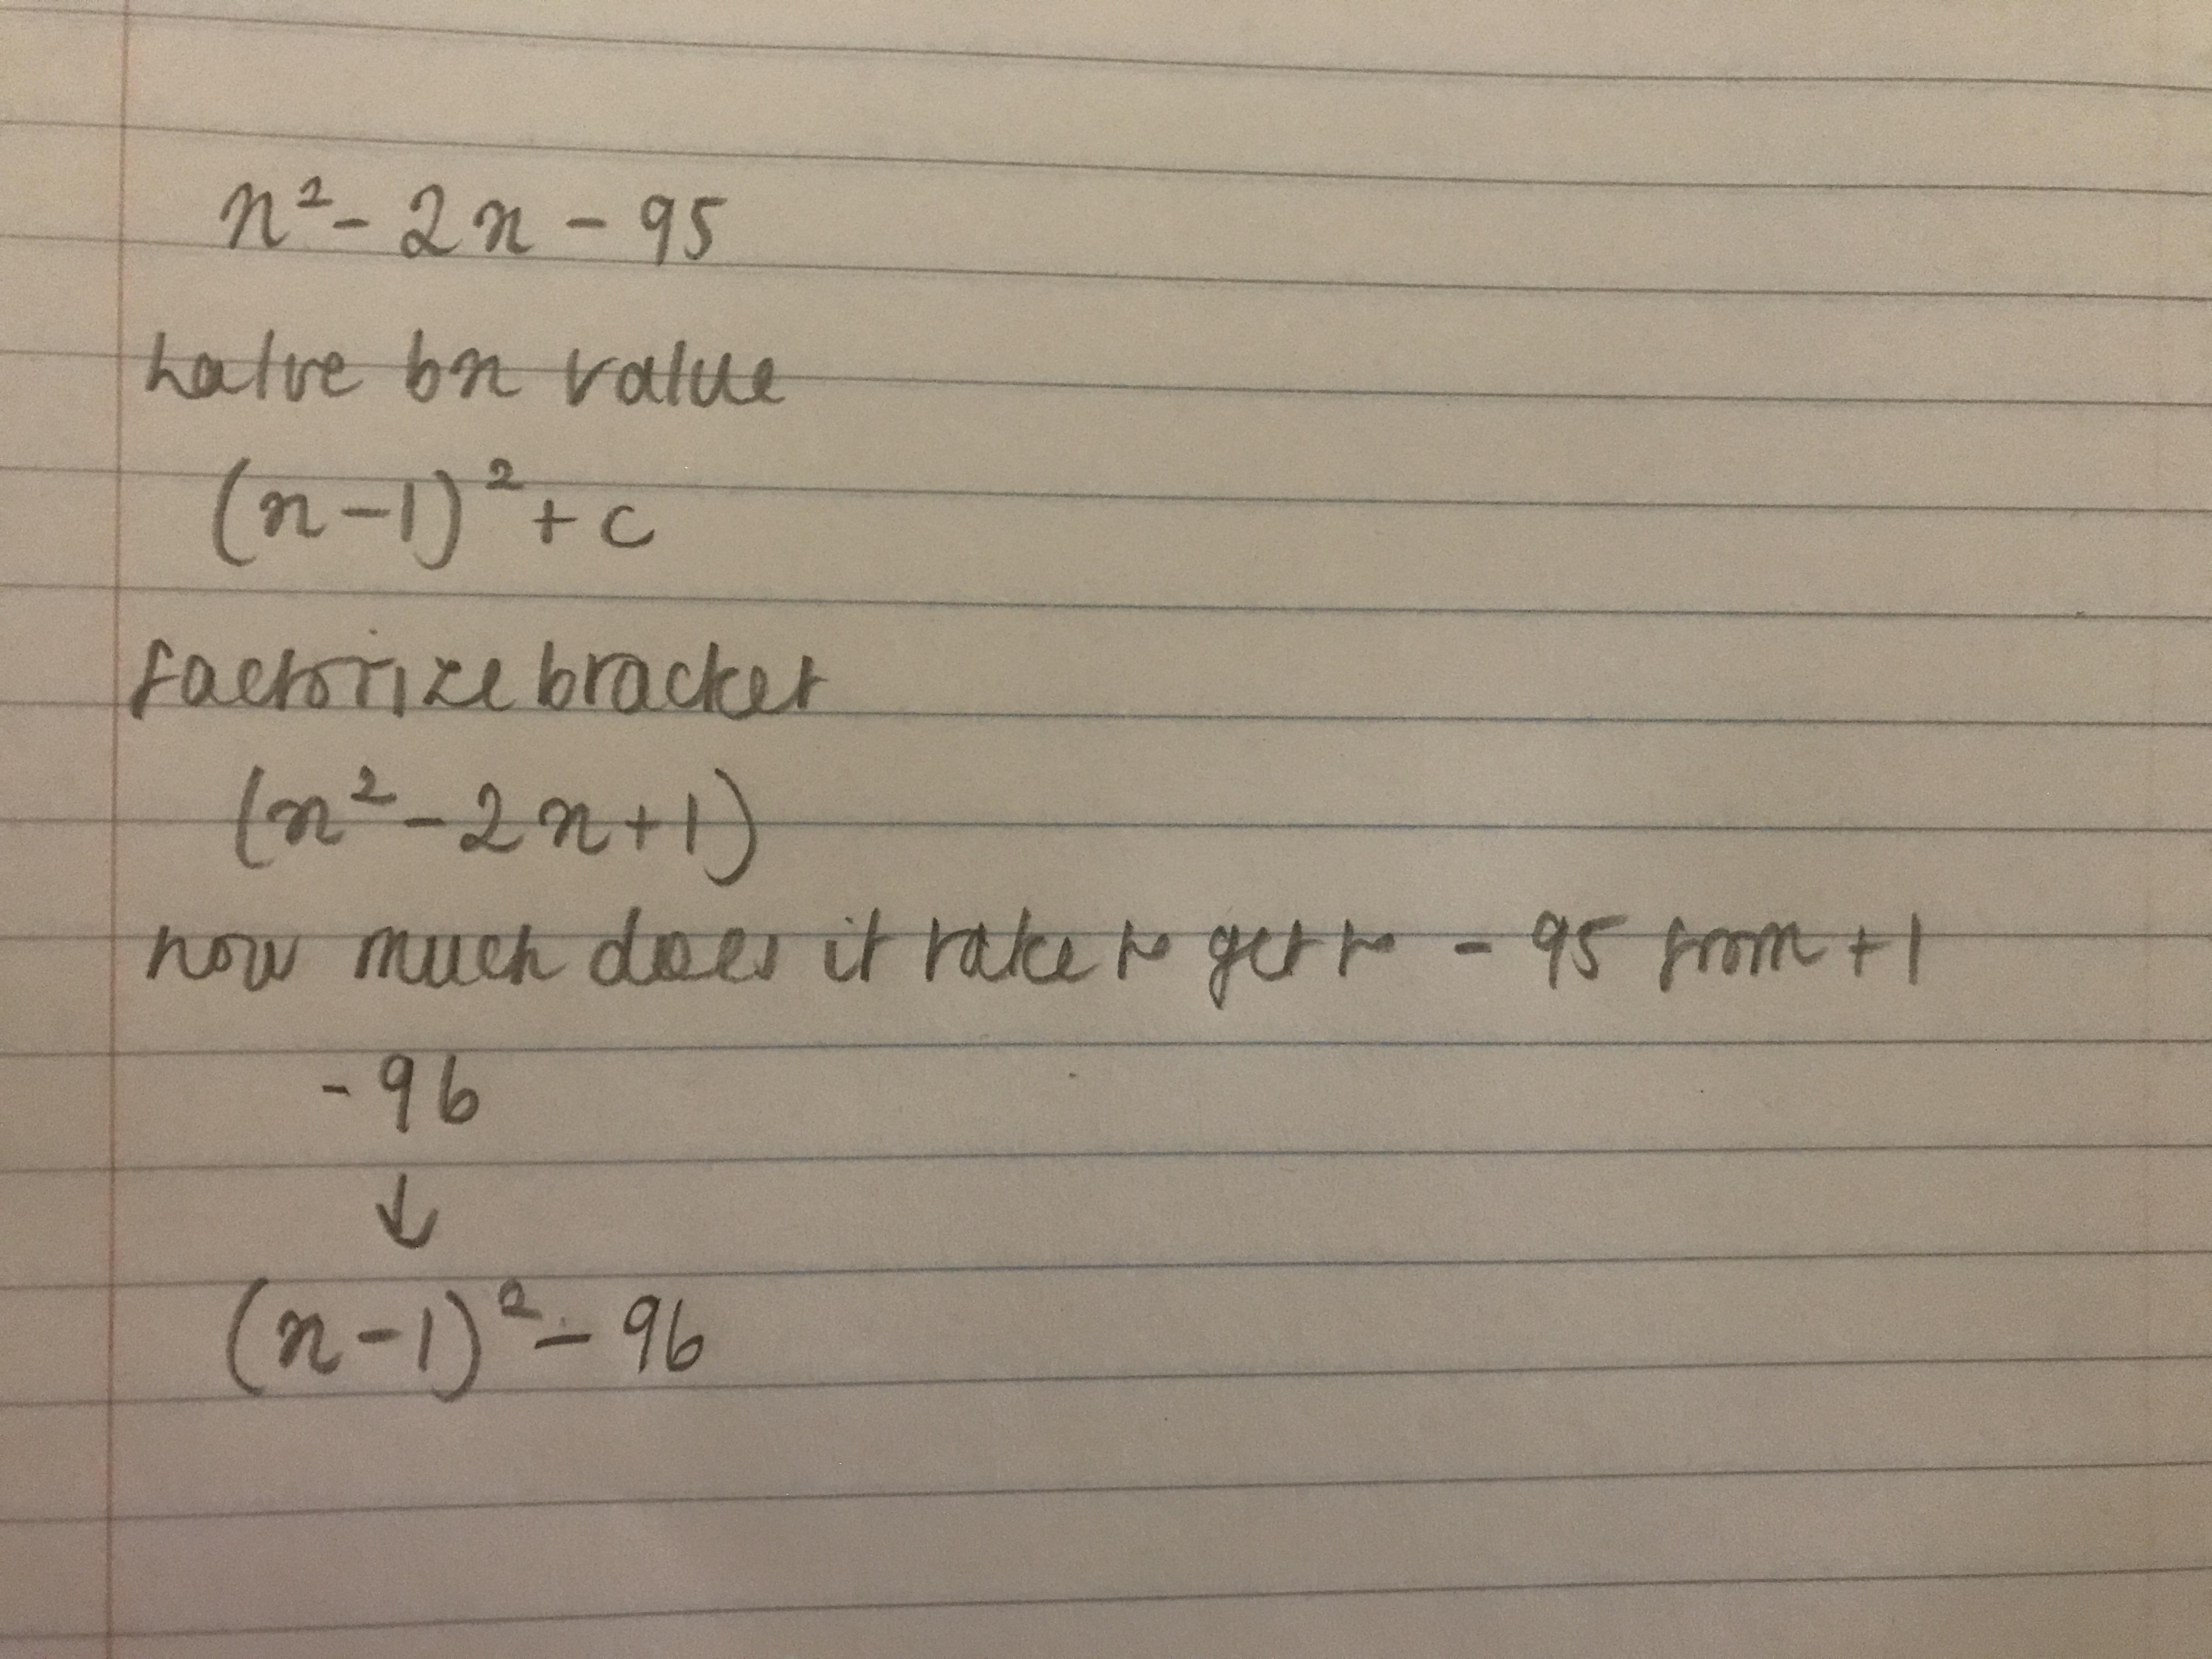 x² - 2x - 95
halve bx value
(x - 1)² + c
factorize bracket
(x² - 2x + 1)
how much does it take to get to - 95 from + 1
- 96
↓
(x - 1)² - 96